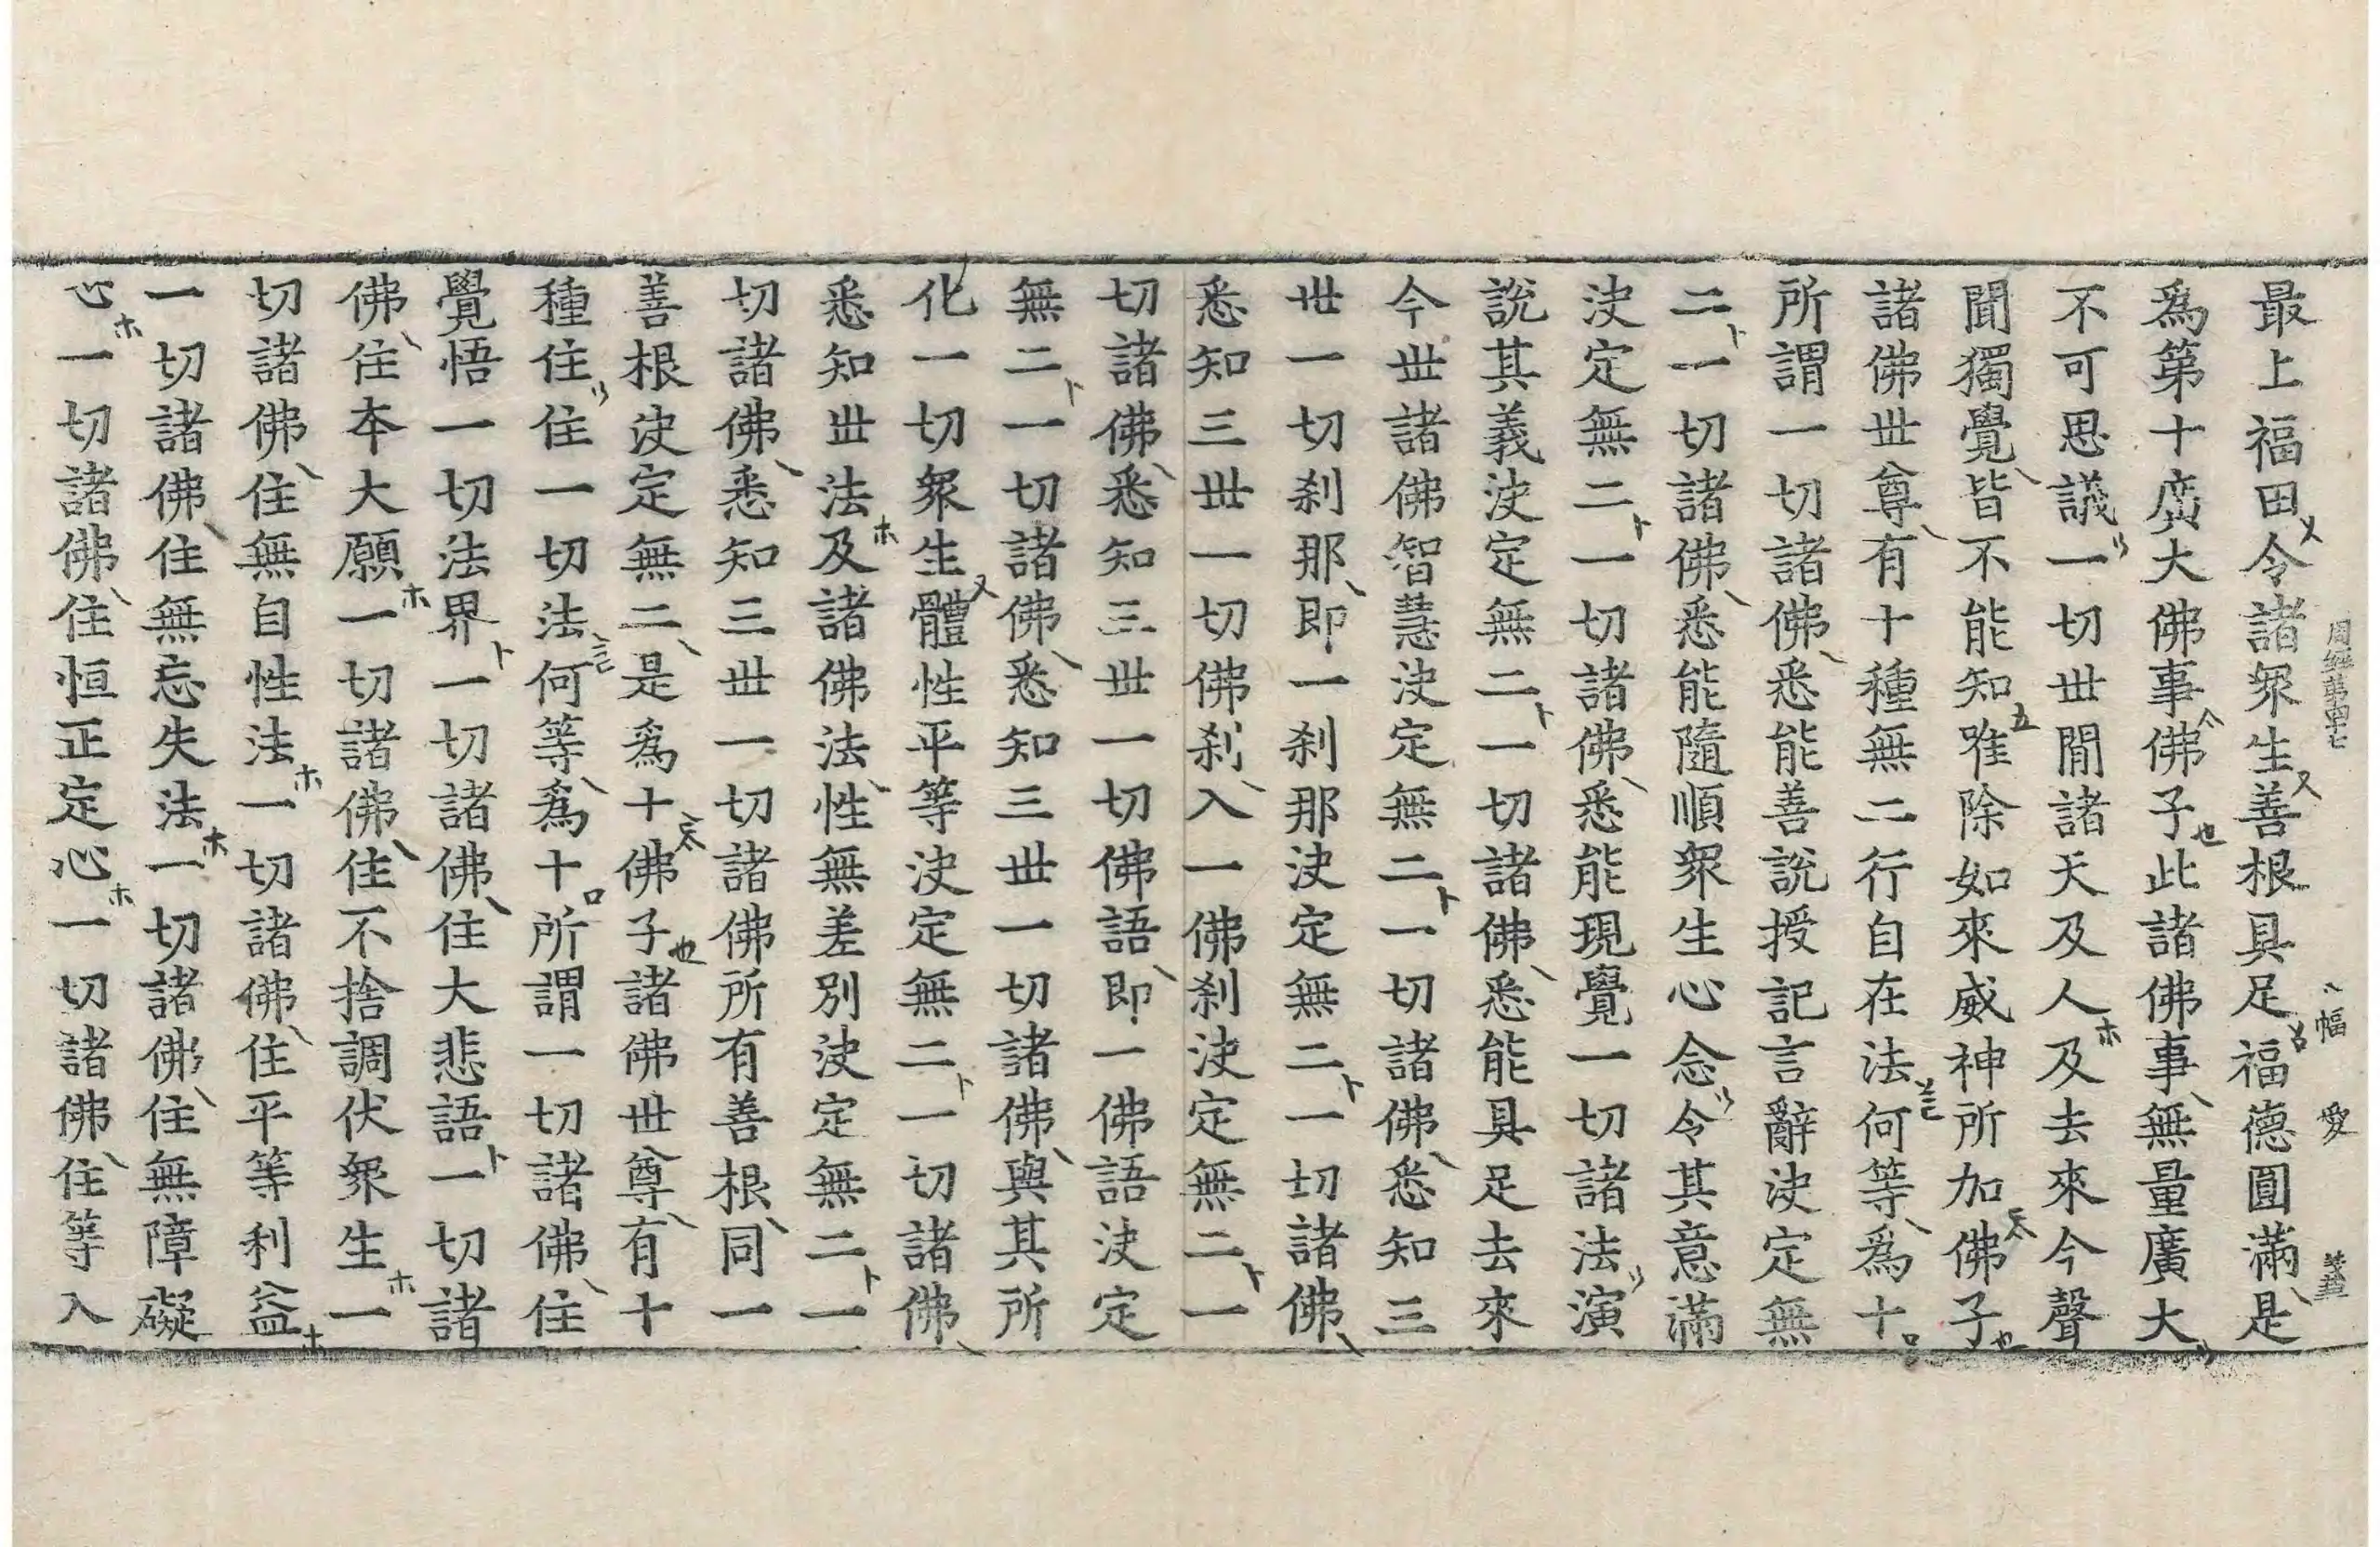 周經第四十七 幅 愛 謹
最上福田令諸衆生善根具足福德圓滿是
爲第十廣大佛事佛子此諸佛事無量廣大
不可思議一切世閒諸天及人及去來今聲
聞獨覺皆不能知唯除如來威神所加佛子
諸佛世尊有十種無二行自在法何等爲十
所謂一切諸佛悉能善說授記言辭決定無
二一切諸佛悉能隨順衆生心念令其意滿
決定無二一切諸佛悉能現覺一切諸法演
說其義決定無二一切諸佛悉能具足去來
今世諸佛智慧決定無二一切諸佛悉知三
世一切刹那即一刹那決定無二一切諸佛
悉知三世一切佛刹入一佛刹決定無二一
切諸佛悉知三世一切佛語即一佛語決定
無二一切諸佛悉知三世一切諸佛與其所
化一切衆生體性平等決定無二一切諸佛
悉知世法及諸佛法性無差別決定無二一
切諸佛悉知三世一切諸佛所有善根同一
善根決定無二是爲十佛子諸佛世尊有十
種住住一切法何等爲十所謂一切諸佛住
覺悟一切法界一切諸佛住大悲語一切諸
佛住本大願一切諸佛住不捨調伏衆生一
切諸佛住無自性法一切諸佛住平等利益
一切諸佛住無忘失法一切諸佛住無障礙
心一切諸佛住恒正定心一切諸佛住等入